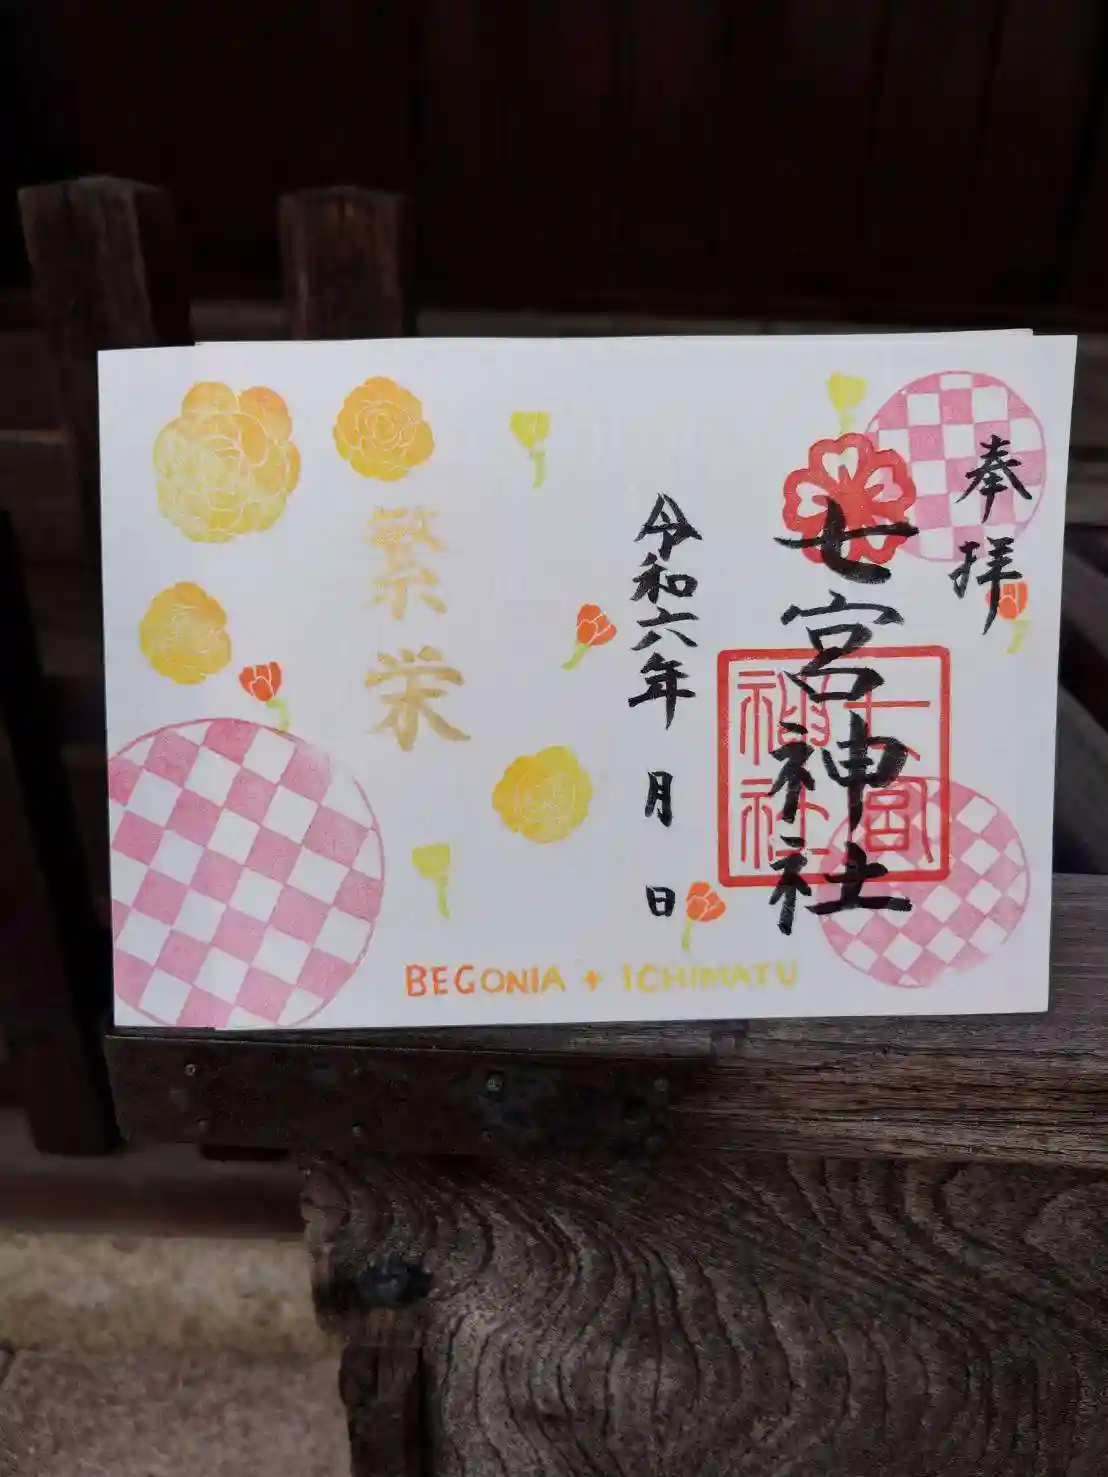 奉拝
七宮神社
七宮
神社
令和六年 月 日
繁栄
BEGONIA + ICHIMATU